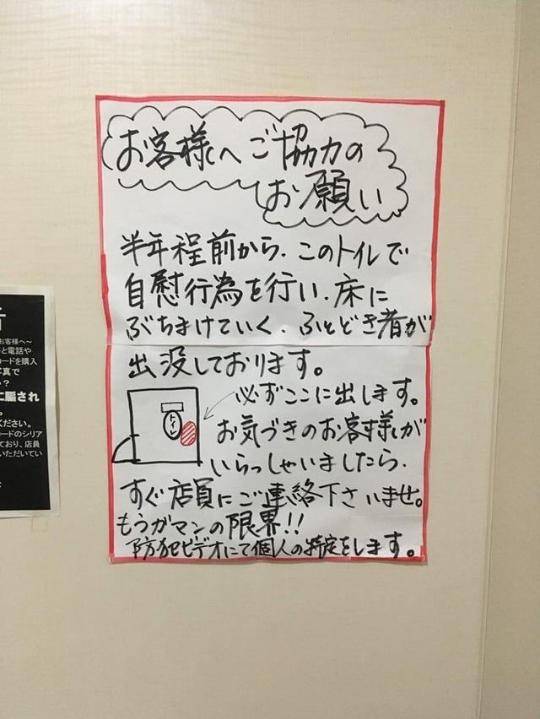 お客様へご協力の
お願い
半年程前から、このトイレで
自慰行為を行い、床に
ぶちまけていく、ふとどき者が
出没しております。
必ずここに出します。
お気づきのお客様が
いらっしゃいましたら、
すぐ店員にご連絡下さいませ。
もうガマンの限界!!
防犯ビデオにて個人の特定をします。
お客様へ〜
と電話や
コードを購入
写真で
?
に騙され
ください。
ードのシリア
ており、店員
いただいてい